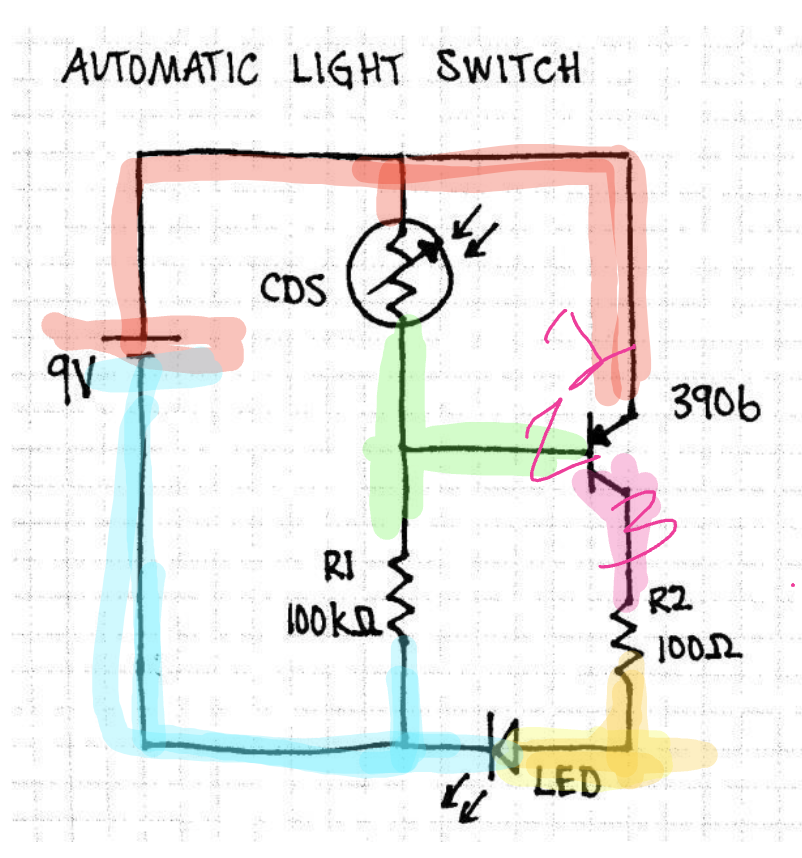 AUTOMATIC LIGHT SWITCH
CDS
9V
3906
R1
100kΩ
R2
100Ω
LED
1
2
3